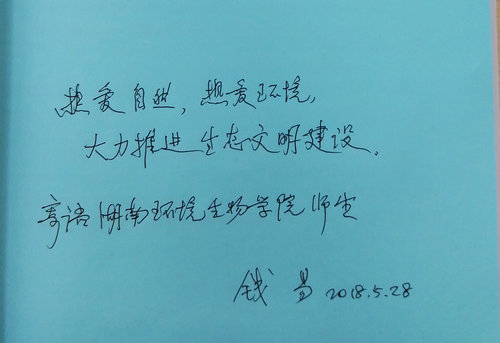 热爱自然，热爱环境，
大力推进生态文明建设。
寄语湖南环境生物学院师生
钱易 2018.5.28